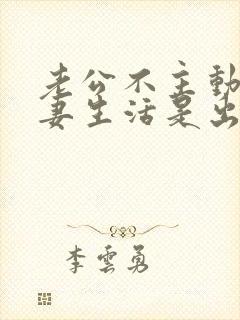 老公不主動
妻生活是出
李雲勇